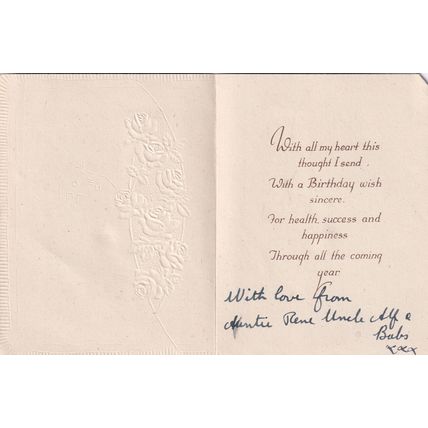 With all my heart this
thought I send,
With a Birthday wish
sincere.
For health, success and
happiness
Through all the coming
year
With love from
Auntie Rene Uncle Alf &
Babs
xxx